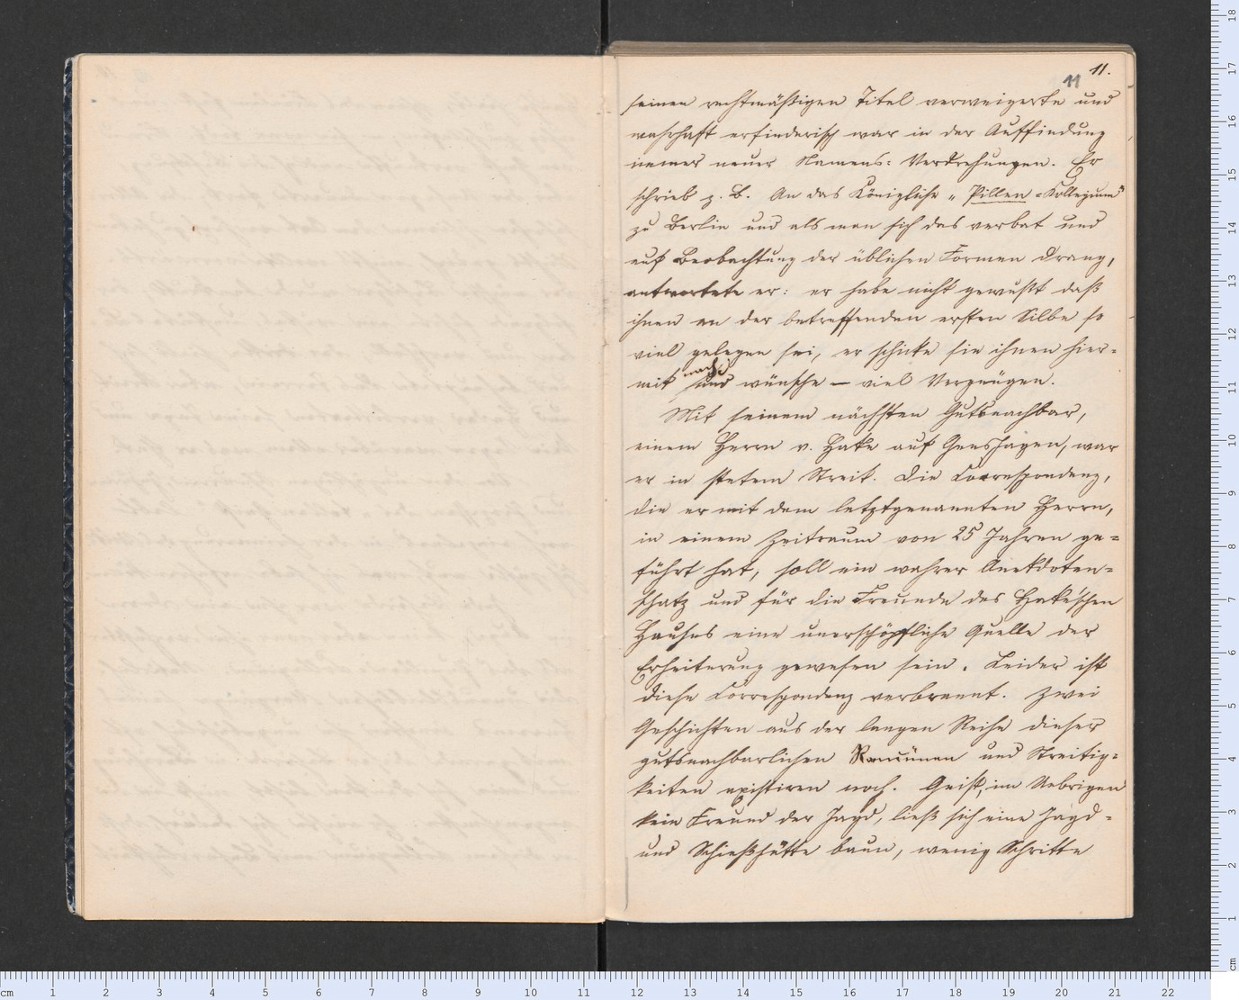 11.
11
seinen rechtmäßigen Titel verweigerte und
wahrhaft erfinderisch war in der Auffindung
immer neuer Namens: Verdrehungen. Er
schrieb z. B. An das Königliche „Pillen-Kollegium“
zu Berlin und als man sich das verbat und
auf Beobachtung der üblichen Formen drang,
antwortete er: er habe nicht gewußt daß
ihnen an der betreffenden ersten Silbe so
viel gelegen sei, er schicke sie ihnen hier-
mit nach; und wünsche — viel Vergnügen.
Mit seinem nächsten Gutsnachbar,
einem Herrn v. Hake auf Genshagen, war
er in stetem Streit. Die Correspondenz,
die er mit dem letztgenannten Herrn,
in einem Zeitraum von 25 Jahren ge-
führt hat, soll ein wahrer Anekdoten-
schatz und für die Freunde des Hake'schen
Hauses eine unerschöpfliche Quelle der
Erheiterung gewesen sein. Leider ist
diese Correspondenz verbrannt. Zwei
Geschichten aus der langen Reihe dieser
gutsnachbarlichen Rancünen und Streitig-
keiten existiren noch. Geist, im Uebrigen
kein Freund der Jagd, ließ sich eine Jagd-
und Schießhütte baun, wenig Schritte